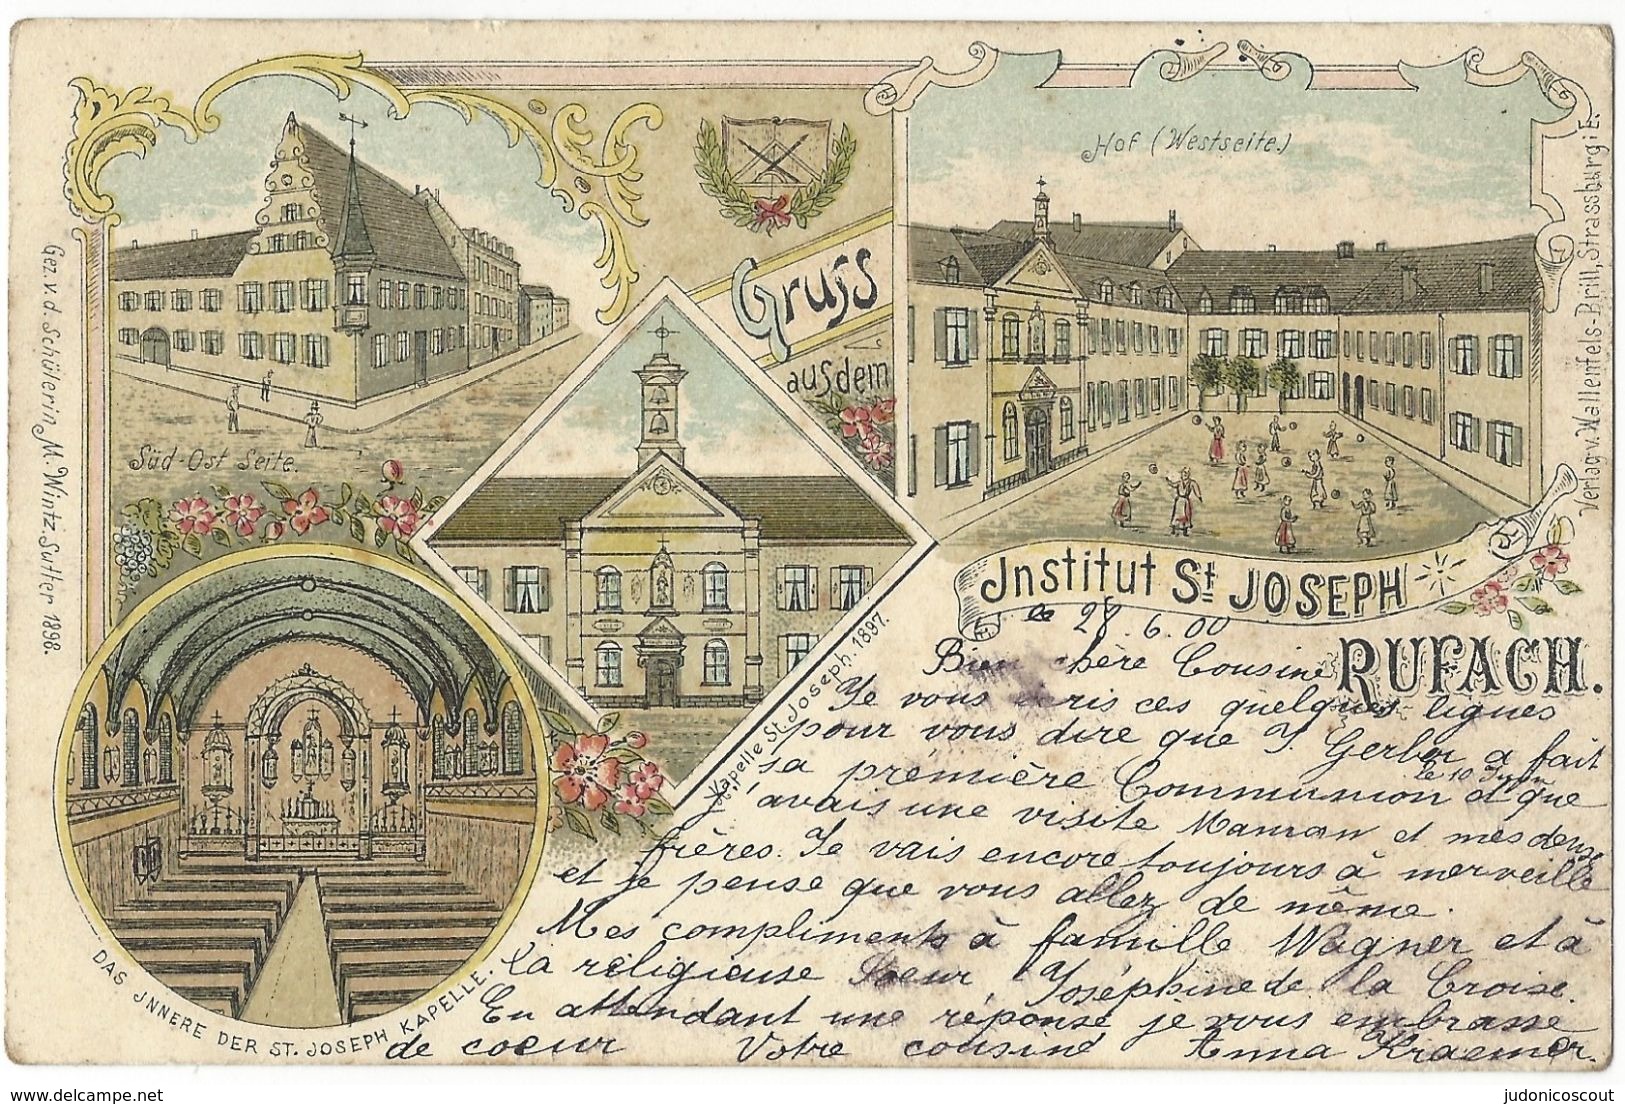 Hof (Westseite.)
Gruss
aus dem
Süd-Ost Seite.
Gez. v. d. Schülerin M. Wintz-Sutter 1898.
Verlag v. Wallenfels-Brill, Strassburg i E.
Kapelle St. Joseph. 1897.
DAS JNNERE DER ST. JOSEPH KAPELLE.
Jnstitut St JOSEPH
RUFACH.
le 28.6.00
Bien chère Cousine
Je vous écris ces quelques lignes
pour vous dire que J. Gerber a fait
sa première Communion le 10 Juin et que
j'avais une visite Maman et mes deux
frères. Je vais encore toujours à merveille
et je pense que vous allez de même.
Mes compliments à famille Wagner et à
la religieuse Soeur Joséphine de la Croise.
En attendant une réponse je vous embrasse
de coeur Votre cousine Anna Kraemer.
delcampe.net
judonicoscout